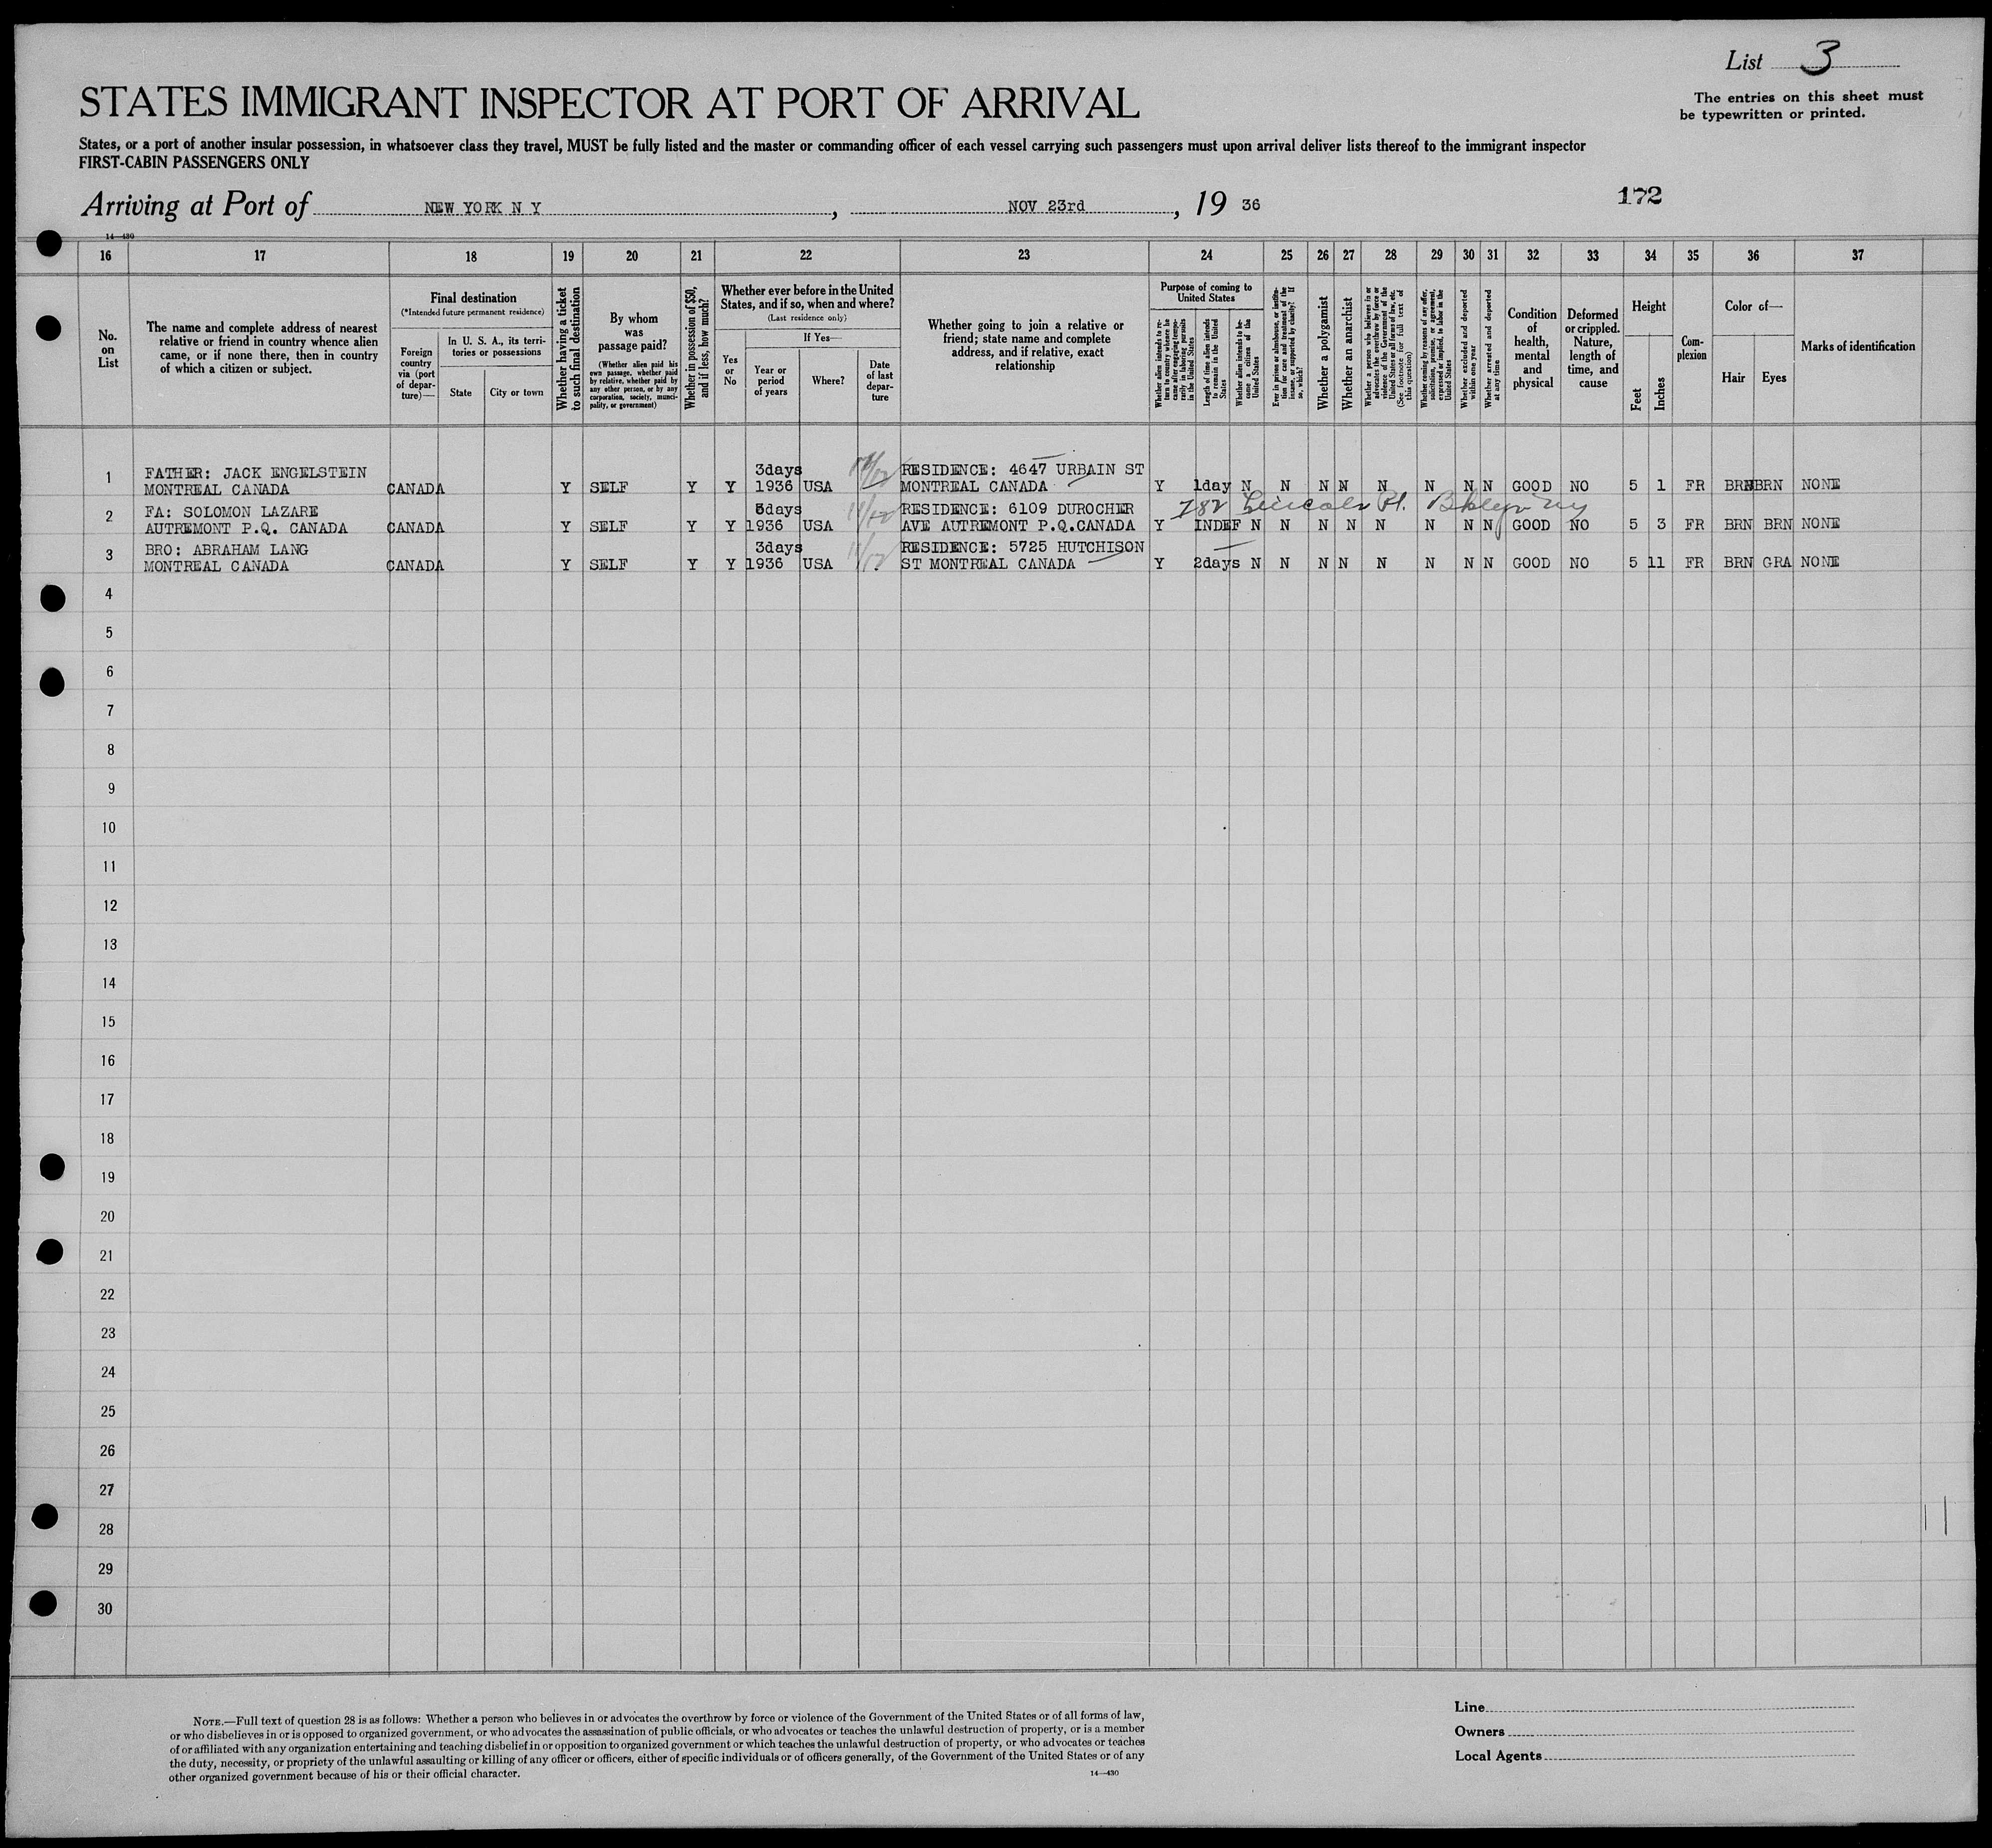 List 3
STATES IMMIGRANT INSPECTOR AT PORT OF ARRIVAL
The entries on this sheet must
be typewritten or printed.
States, or a port of another insular possession, in whatsoever class they travel, MUST be fully listed and the master or commanding officer of each vessel carrying such passengers must upon arrival deliver lists thereof to the immigrant inspector
FIRST-CABIN PASSENGERS ONLY
Arriving at Port of NEW YORK N Y , NOV 23rd , 19 36
172
14—430
16 17 18 19 20 21 22 23 24 25 26 27 28 29 30 31 32 33 34 35 36 37
No. on List
The name and complete address of nearest relative or friend in country whence alien came, or if none there, then in country of which a citizen or subject.
Final destination
(*Intended future permanent residence)
Foreign country via (port of departure)—
In U. S. A., its territories or possessions
State
City or town
Whether having a ticket to such final destination
By whom was passage paid?
(Whether alien paid his own passage, whether paid by relative, whether paid by any other person, or by any corporation, society, municipality, or government)
Whether in possession of $50, and if less, how much?
Whether ever before in the United States, and if so, when and where?
(Last residence only)
Yes or No
If Yes—
Year or period of years
Where?
Date of last departure
Whether going to join a relative or friend; state name and complete address, and if relative, exact relationship
Purpose of coming to United States
Whether alien intends to return to country whence he came after engaging temporarily in laboring pursuits in the United States
Length of time alien intends to remain in the United States
Whether alien intends to become a citizen of the United States
Ever in prison or almshouse, or institution for care and treatment of the insane, or supported by charity? If so, which?
Whether a polygamist
Whether an anarchist
Whether a person who believes in or advocates the overthrow by force or violence of the Government of the United States or all forms of law, etc. (See footnote for full text of this question)
Whether coming by reasons of any offer, solicitation, promise, or agreement, expressed or implied, to labor in the United States
Whether excluded and deported within one year
Whether arrested and deported at any time
Condition of health, mental and physical
Deformed or crippled. Nature, length of time, and cause
Height
Feet
Inches
Complexion
Color of—
Hair
Eyes
Marks of identification
1 FATHER: JACK ENGELSTEIN 3days RESIDENCE: 4647 URBAIN ST
MONTREAL CANADA CANADA Y SELF Y Y 1936 USA MONTREAL CANADA Y 1day N N N N N N N N GOOD NO 5 1 FR BRN BRN NONE
782 Lincoln Pl. Bklyn Ny
2 FA: SOLOMON LAZARE days RESIDENCE: 6109 DUROCHER
AUTREMONT P.Q. CANADA CANADA Y SELF Y Y 1936 USA AVE AUTREMONT P.Q.CANADA Y INDEF N N N N N N N N GOOD NO 5 3 FR BRN BRN NONE
3 BRO: ABRAHAM LANG 3days RESIDENCE: 5725 HUTCHISON
MONTREAL CANADA CANADA Y SELF Y Y 1936 USA ST MONTREAL CANADA Y 2days N N N N N N N N GOOD NO 5 11 FR BRN GRA NONE
4
5
6
7
8
9
10
11
12
13
14
15
16
17
18
19
20
21
22
23
24
25
26
27
28
29
30
NOTE.—Full text of question 28 is as follows: Whether a person who believes in or advocates the overthrow by force or violence of the Government of the United States or of all forms of law,
or who disbelieves in or is opposed to organized government, or who advocates the assassination of public officials, or who advocates or teaches the unlawful destruction of property, or is a member
of or affiliated with any organization entertaining and teaching disbelief in or opposition to organized government or which teaches the unlawful destruction of property, or who advocates or teaches
the duty, necessity, or propriety of the unlawful assaulting or killing of any officer or officers, either of specific individuals or of officers generally, of the Government of the United States or of any
other organized government because of his or their official character.
14—430
Line
Owners
Local Agents